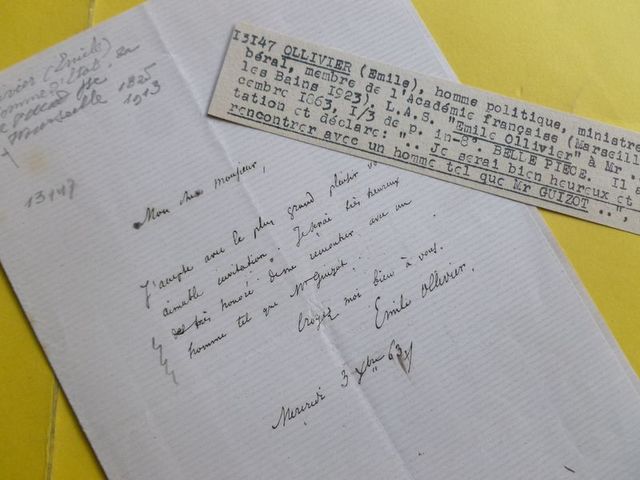 13147 OLLIVIER (Emile), homme politique, ministre
béral, membre de l'Académie française (Marseill
les Bains 1923). L.A.S. "Emile Ollivier" à Mr ..
cembre 1863, I/3 de p. in-8° BELLE PIECE. Il
tation et déclare: ".. Je serai bien heureux et
rencontrer avec un homme tel que Mr GUIZOT ..,
vier (Emile)
homme d'Etat, 
Marseille 1825
1913
13147
Mon cher Monsieur,
J'accepte avec le plus grand plaisir vo
aimable invitation. Je serai très heureux
très honoré de me rencontrer avec un
homme tel que Mr Guizot.
Croyez moi bien à vous.
Emile Ollivier.
Mercredi 3 Xbre 63